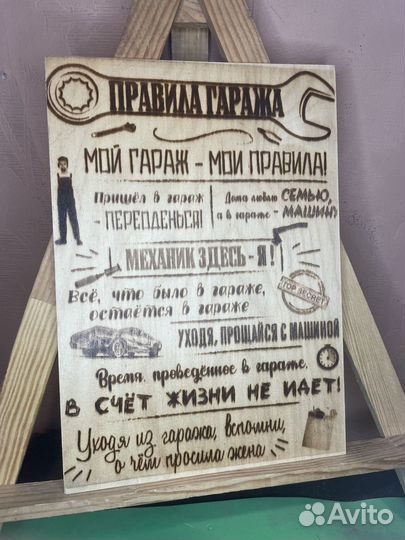 ПРАВИЛА ГАРАЖА
МОЙ ГАРАЖ - МОИ ПРАВИЛА!
Пришёл в гараж
- ПЕРЕОДЕНЬСЯ!
Дома люблю СЕМЬЮ,
а в гараже - МАШИНУ
МЕХАНИК ЗДЕСЬ - Я!
Всё, что было в гараже,
остаётся в гараже
TOP SECRET
УХОДЯ, ПРОЩАЙСЯ С МАШИНОЙ
Время, проведённое в гараже,
В СЧЁТ ЖИЗНИ НЕ ИДЕТ!
Уходя из гаража, вспомни,
о чём просила жена
Avito